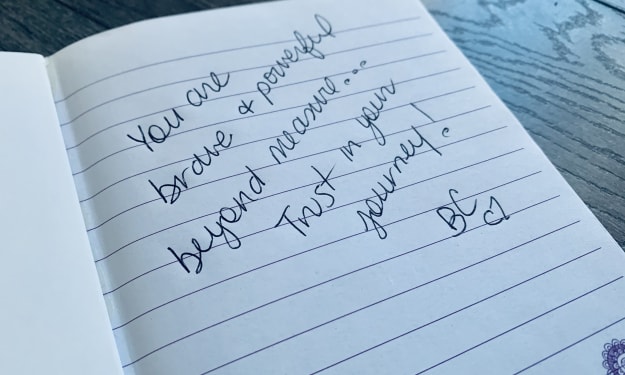 You are
brave & powerful
beyond measure...
Trust in your
journey!
BC